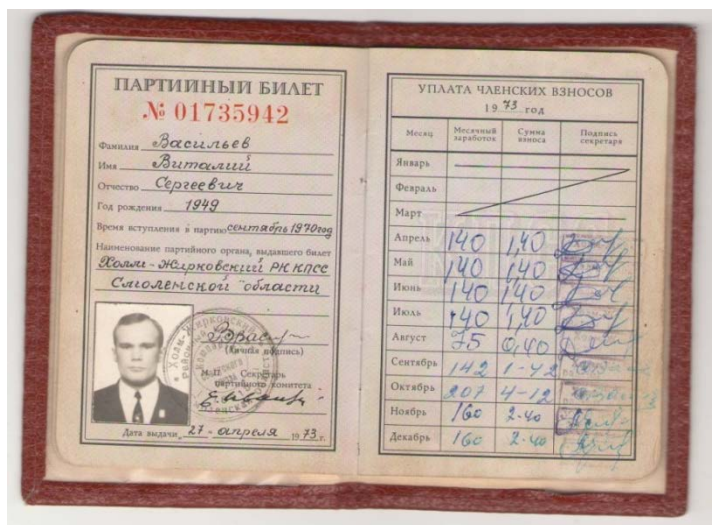 ПАРТИЙНЫЙ БИЛЕТ
№ 01735942
Фамилия Васильев
Имя Виталий
Отчество Сергеевич
Год рождения 1949
Время вступления в партию сентябрь 1970 год
Наименование партийного органа, выдавшего билет
Холм-Жирковский РК КПСС
Смоленской области
(личная подпись)
М.П. Секретарь
партийного комитета
Дата выдачи 27 - апреля 1973 г.
УПЛАТА ЧЛЕНСКИХ ВЗНОСОВ
1973 год
Месяц Месячный заработок Сумма взноса Подпись секретаря
Январь
Февраль
Март
Апрель 140 1,40
Май 140 1,40
Июнь 140 1,40
Июль 140 1,40
Август 75 0,40
Сентябрь 142 1-42
Октябрь 207 4-12
Ноябрь 160 2-40
Декабрь 160 2-40